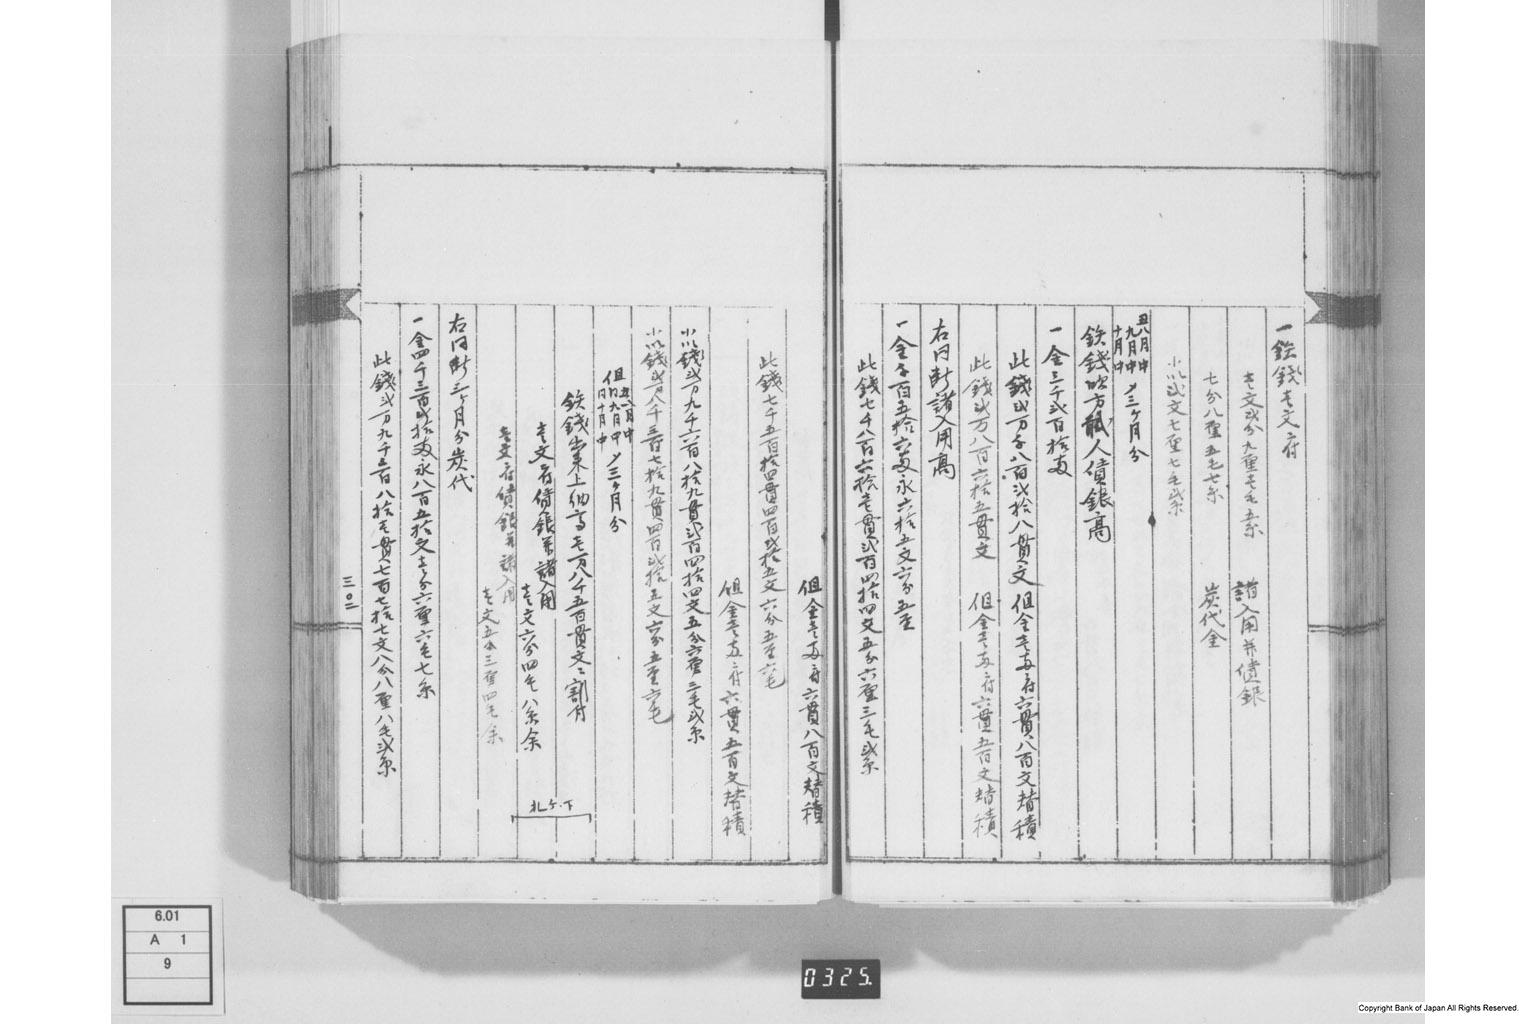 一 鉄銭壱文ニ付
壱文弐分九厘壱毛五糸 諸入用并債銀
七分八厘五毛七糸 炭代金
小以弐文七厘七毛弐糸
丑八月中
九月中
十月中
〆三ヶ月分
鉄銭吹方職人債銀高
一 金三千弐百拾両
此銭弐万千八百弐拾八貫文 但金壱両ニ付六貫八百文替積
此銭弐万八百六拾五貫文 但金壱両ニ付六貫五百文替積
右同断諸入用高
一 金千百五拾六両永六拾五文六分五厘
此銭七千八百六拾壱貫弐百四拾四文五分六厘三毛弐糸
但金壱両ニ付六貫八百文替積
此銭七千五百拾四貫四百弐拾五文六分五厘六毛
但金壱両ニ付六貫五百文替積
小以銭弐万九千六百八拾九貫弐百四拾四文五分六厘三毛弐糸
小以銭弐万八千三百七拾九貫四百弐拾五文六分五厘六毛
但
丑八月中
同九月中
同十月中
〆三ヶ月分
鉄銭出来上納高壱万八千五百貫文ニ割付
壱文ニ付債銀并諸入用 壱文六分四毛八糸余
壱文ニ付債銀并諸入用 壱文五分三厘四毛余
札ケ下
右同断三ヶ月分炭代
一 金四千三百弐拾両永八百五拾文壱分六厘六毛七糸
此銭弐万九千三百八拾壱貫七百七拾七文八分八厘八毛弐糸
三〇二
6.01
A 1
9
0325.
Copyright Bank of Japan All Rights Reserved.